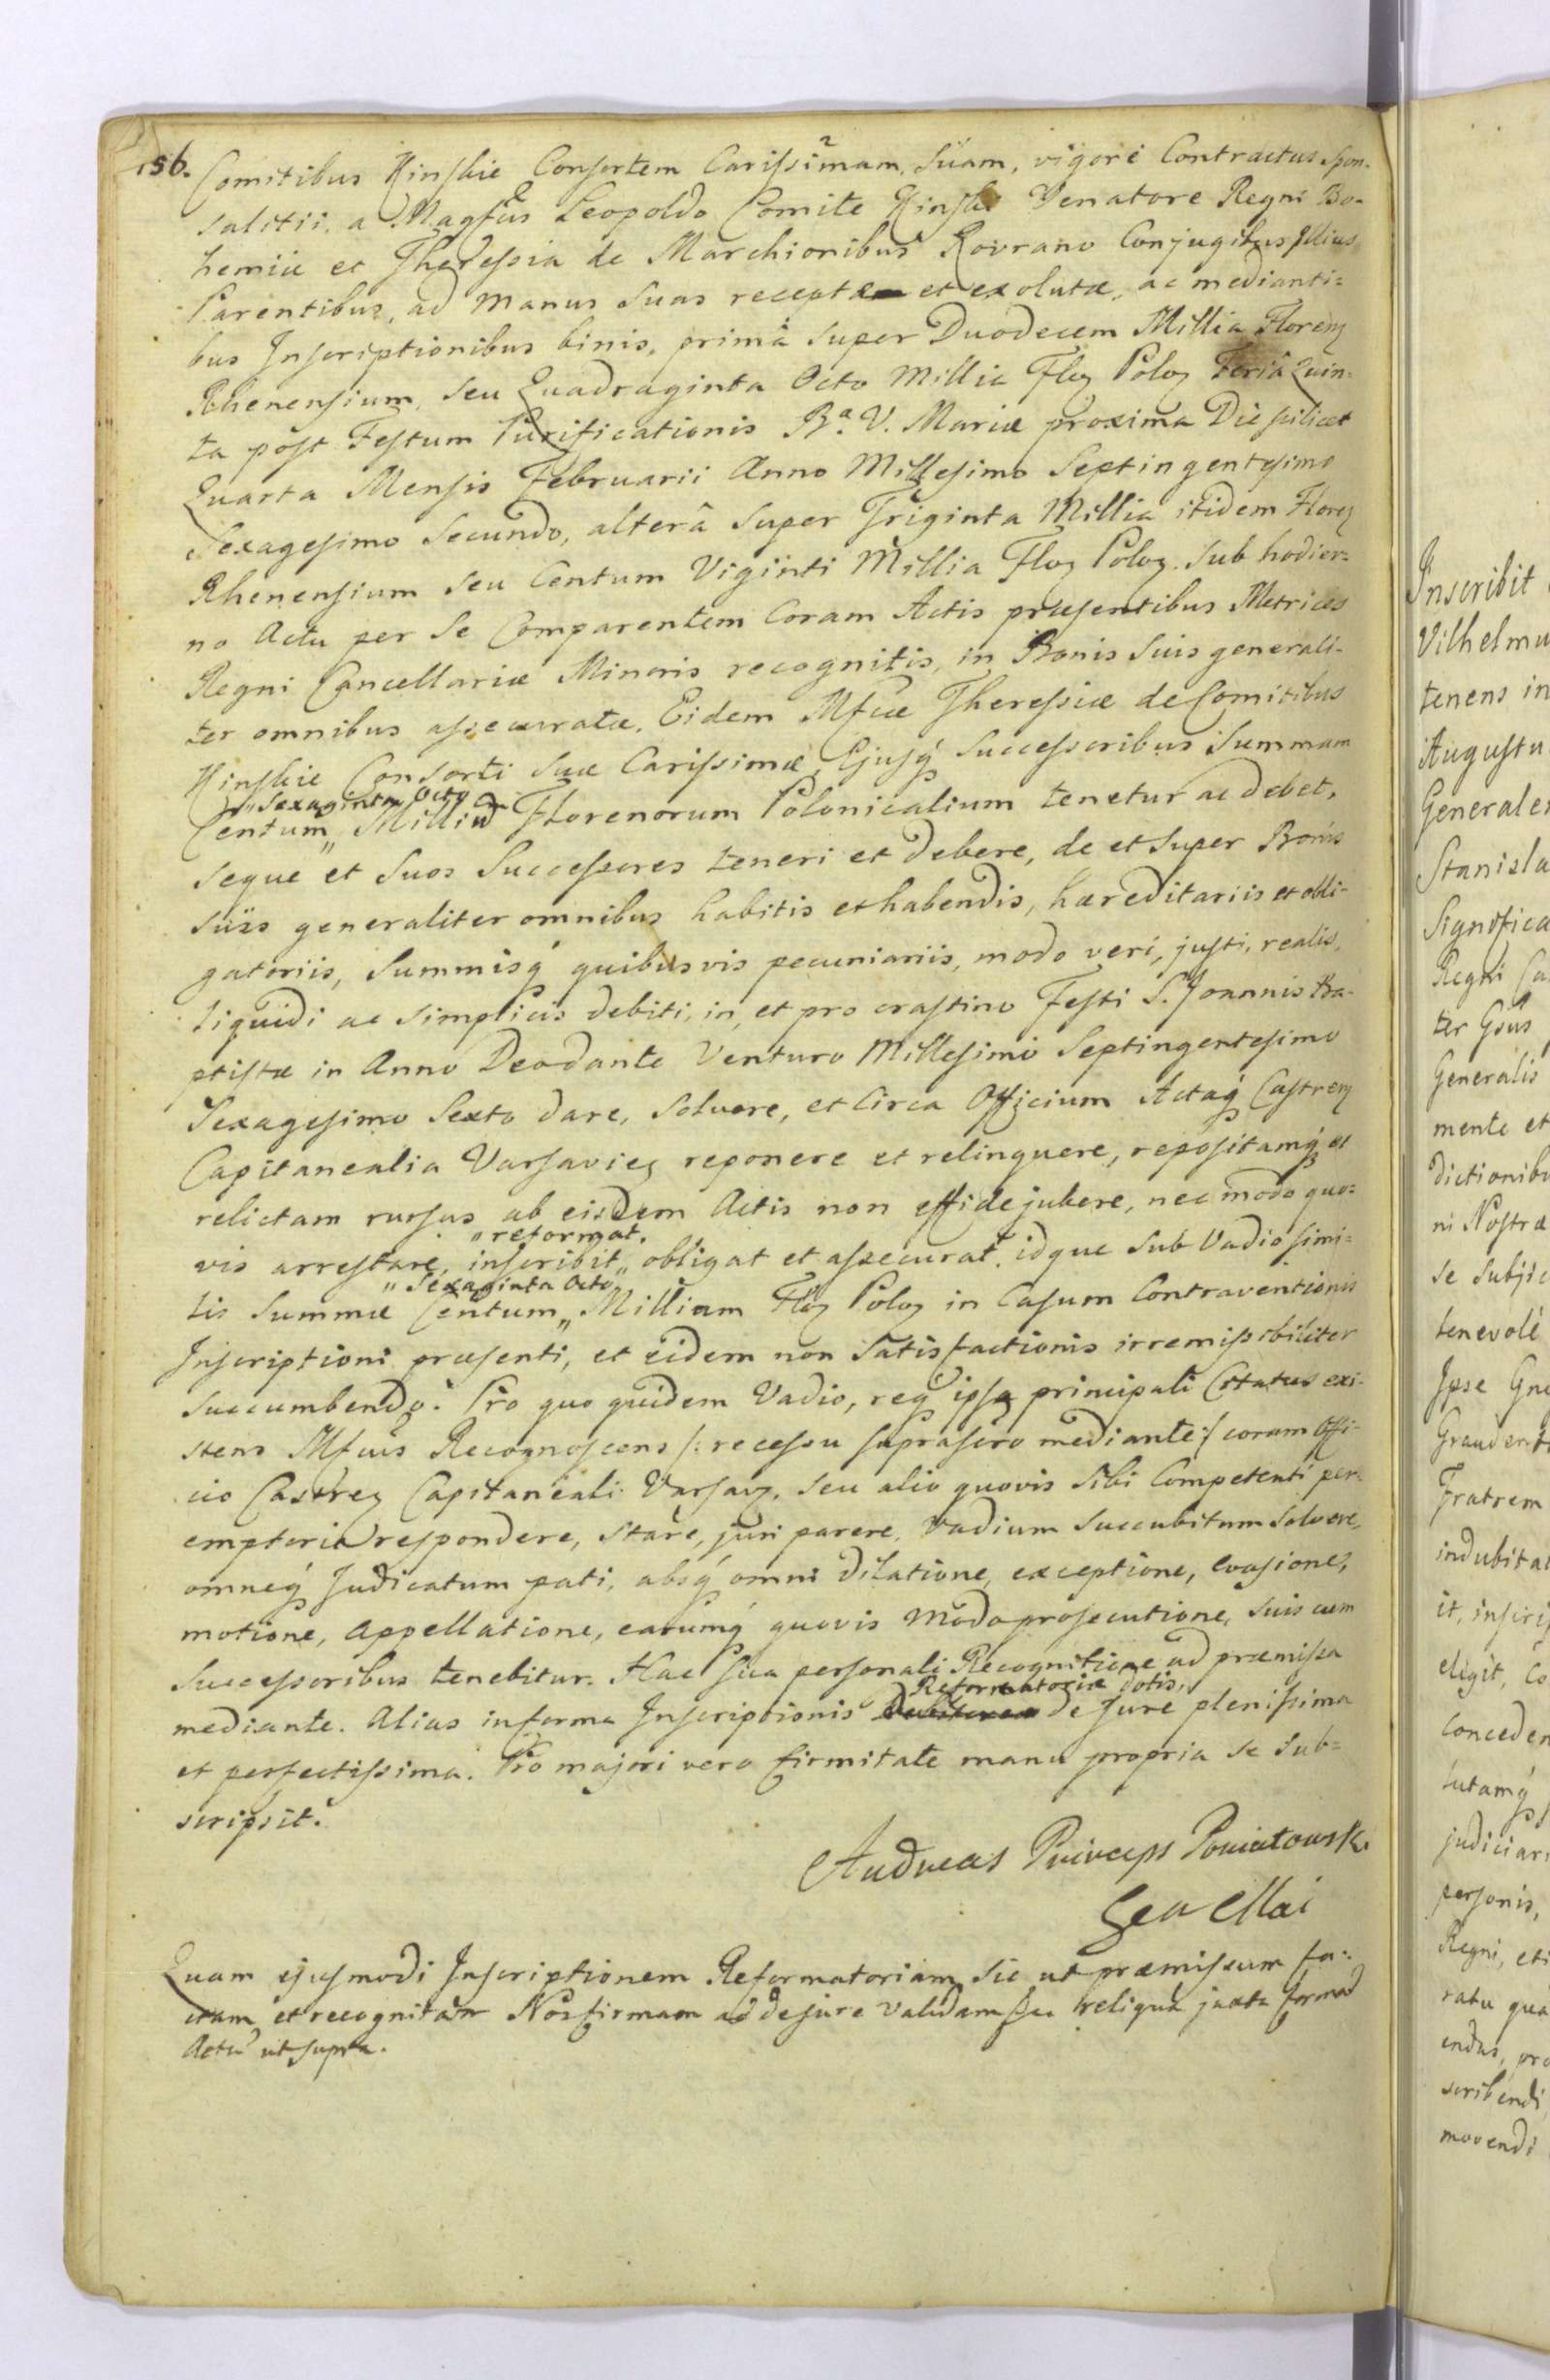 156.
Comitibus Kinskie Consortem Carissimam Suam, vigore Contractus Spon-
salitii, a Magfcis Leopoldo Comite Kinski Venatore Regni Bo-
hemiæ et Theressia de Marchionibus Rovrano Conjugibus Illius
Parentibus, ad manus suas receptæ et exolutæ, ac medianti=
bus Inscriptionibus binis, primâ super Duodecem Millia Floren
Rhenensium, seu Quadraginta Octo Millia Flor Polo Feriâ Quin-
ta post Festum Purificationis B. V. Mariæ proxima Die scilicet
Quarta Mensis Februarii Anno Millesimo Septingentesimo
Sexagesimo Secundo, alterâ super Triginta Millia itidem Floren
Rhenensium seu Centum Viginti Millia Flor Polo. sub hodier=
no Actu per se Comparentem Coram Actis præsentibus Metrices
Regni Cancellariæ Minoris recognitis, in Bonis Suis generali-
ter omnibus assecuratæ. Eidem Mfcæ Theressiæ de Comitibus
Kinskie Consorti Suæ Carissimæ, Ejusq Successoribus Summam
"Sexaginta Octo
Centum" Millia Florenorum Polonicalium tenetur ac debet,
seque et Suos Successores teneri et debere, de et super Bonis
suis generaliter omnibus habitis et habendis, hæreditariis et obli-
gatoriis, Summisq quibusvis pecuniariis, modo veri, justi, realis,
liquidi ac simplicis debiti, in, et pro crastino Festi S. Joannis Ba-
ptistæ in Anno Deodante Venturo Millesimo Septingentesimo
Sexagesimo Sexto dare, Solvere, et circa Officium Actaq Castren
Capitanealia Varsavien reponere et relinquere, repositamq et
relictam rursus ab eisdem Actis non effidejubere, nec modo quo=
"reformat.
vis arrestare, inscribit" obligat et assecurat. idque sub Vadio simi=
"Sexaginta Octo
lis Summæ Centum" Millium Flor Polo in Casum Contraventionis
Inscriptioni præsenti, et eidem non satisfactionis irremissibiliter
succumbendo. Pro quo quidem Vadio, req ipsa principali Citatus exi-
stens Mfcus Recognoscens /: recessu suprasero mediante :/ coram Offi-
cio Castren Capitaneali Varsav. seu alio quovis Sibi Competenti per-
emptorie respondere, stare, juri parere, Vadium succubitum Solvere,
omneq Judicatum pati, absq omni dilatione, exceptione, evasione,
motione, Appellatione, earumq quovis modo prosecutione, suis cum
Successoribus tenebitur. Hac sua personali Recognitione ad præmissa
Reformatoriæ dotis,
mediante. Alias in forma Inscriptionis de Jure plenissima
et perfectissima. Pro majori vero firmitate manu propria se sub=
scripsit.
Andreas Princeps Poniatowski
Gen Mai
Quam ejusmodi Inscriptionem Reformatoriam, sic ut præmissum fa-
ctam, et recognitam Nos firmam ac de jure validam reliqua juxta formam
Actu ut supra.
Inscribit
Vilhelmu
tenens in
Augustu
Generales
Stanisla
Significa
Regni Ca
ter Gsus
Generalis
mente et
dictionibu
ni Nostræ
se subjic
benevole
Ipse Gne
Graudent
Fratrem
indubitat
it, inscrip
eligit, Co
Conceden
lutamq
judiciar
personis,
Regni, eti
ratu qua
endus, pro
scribendi
movendi